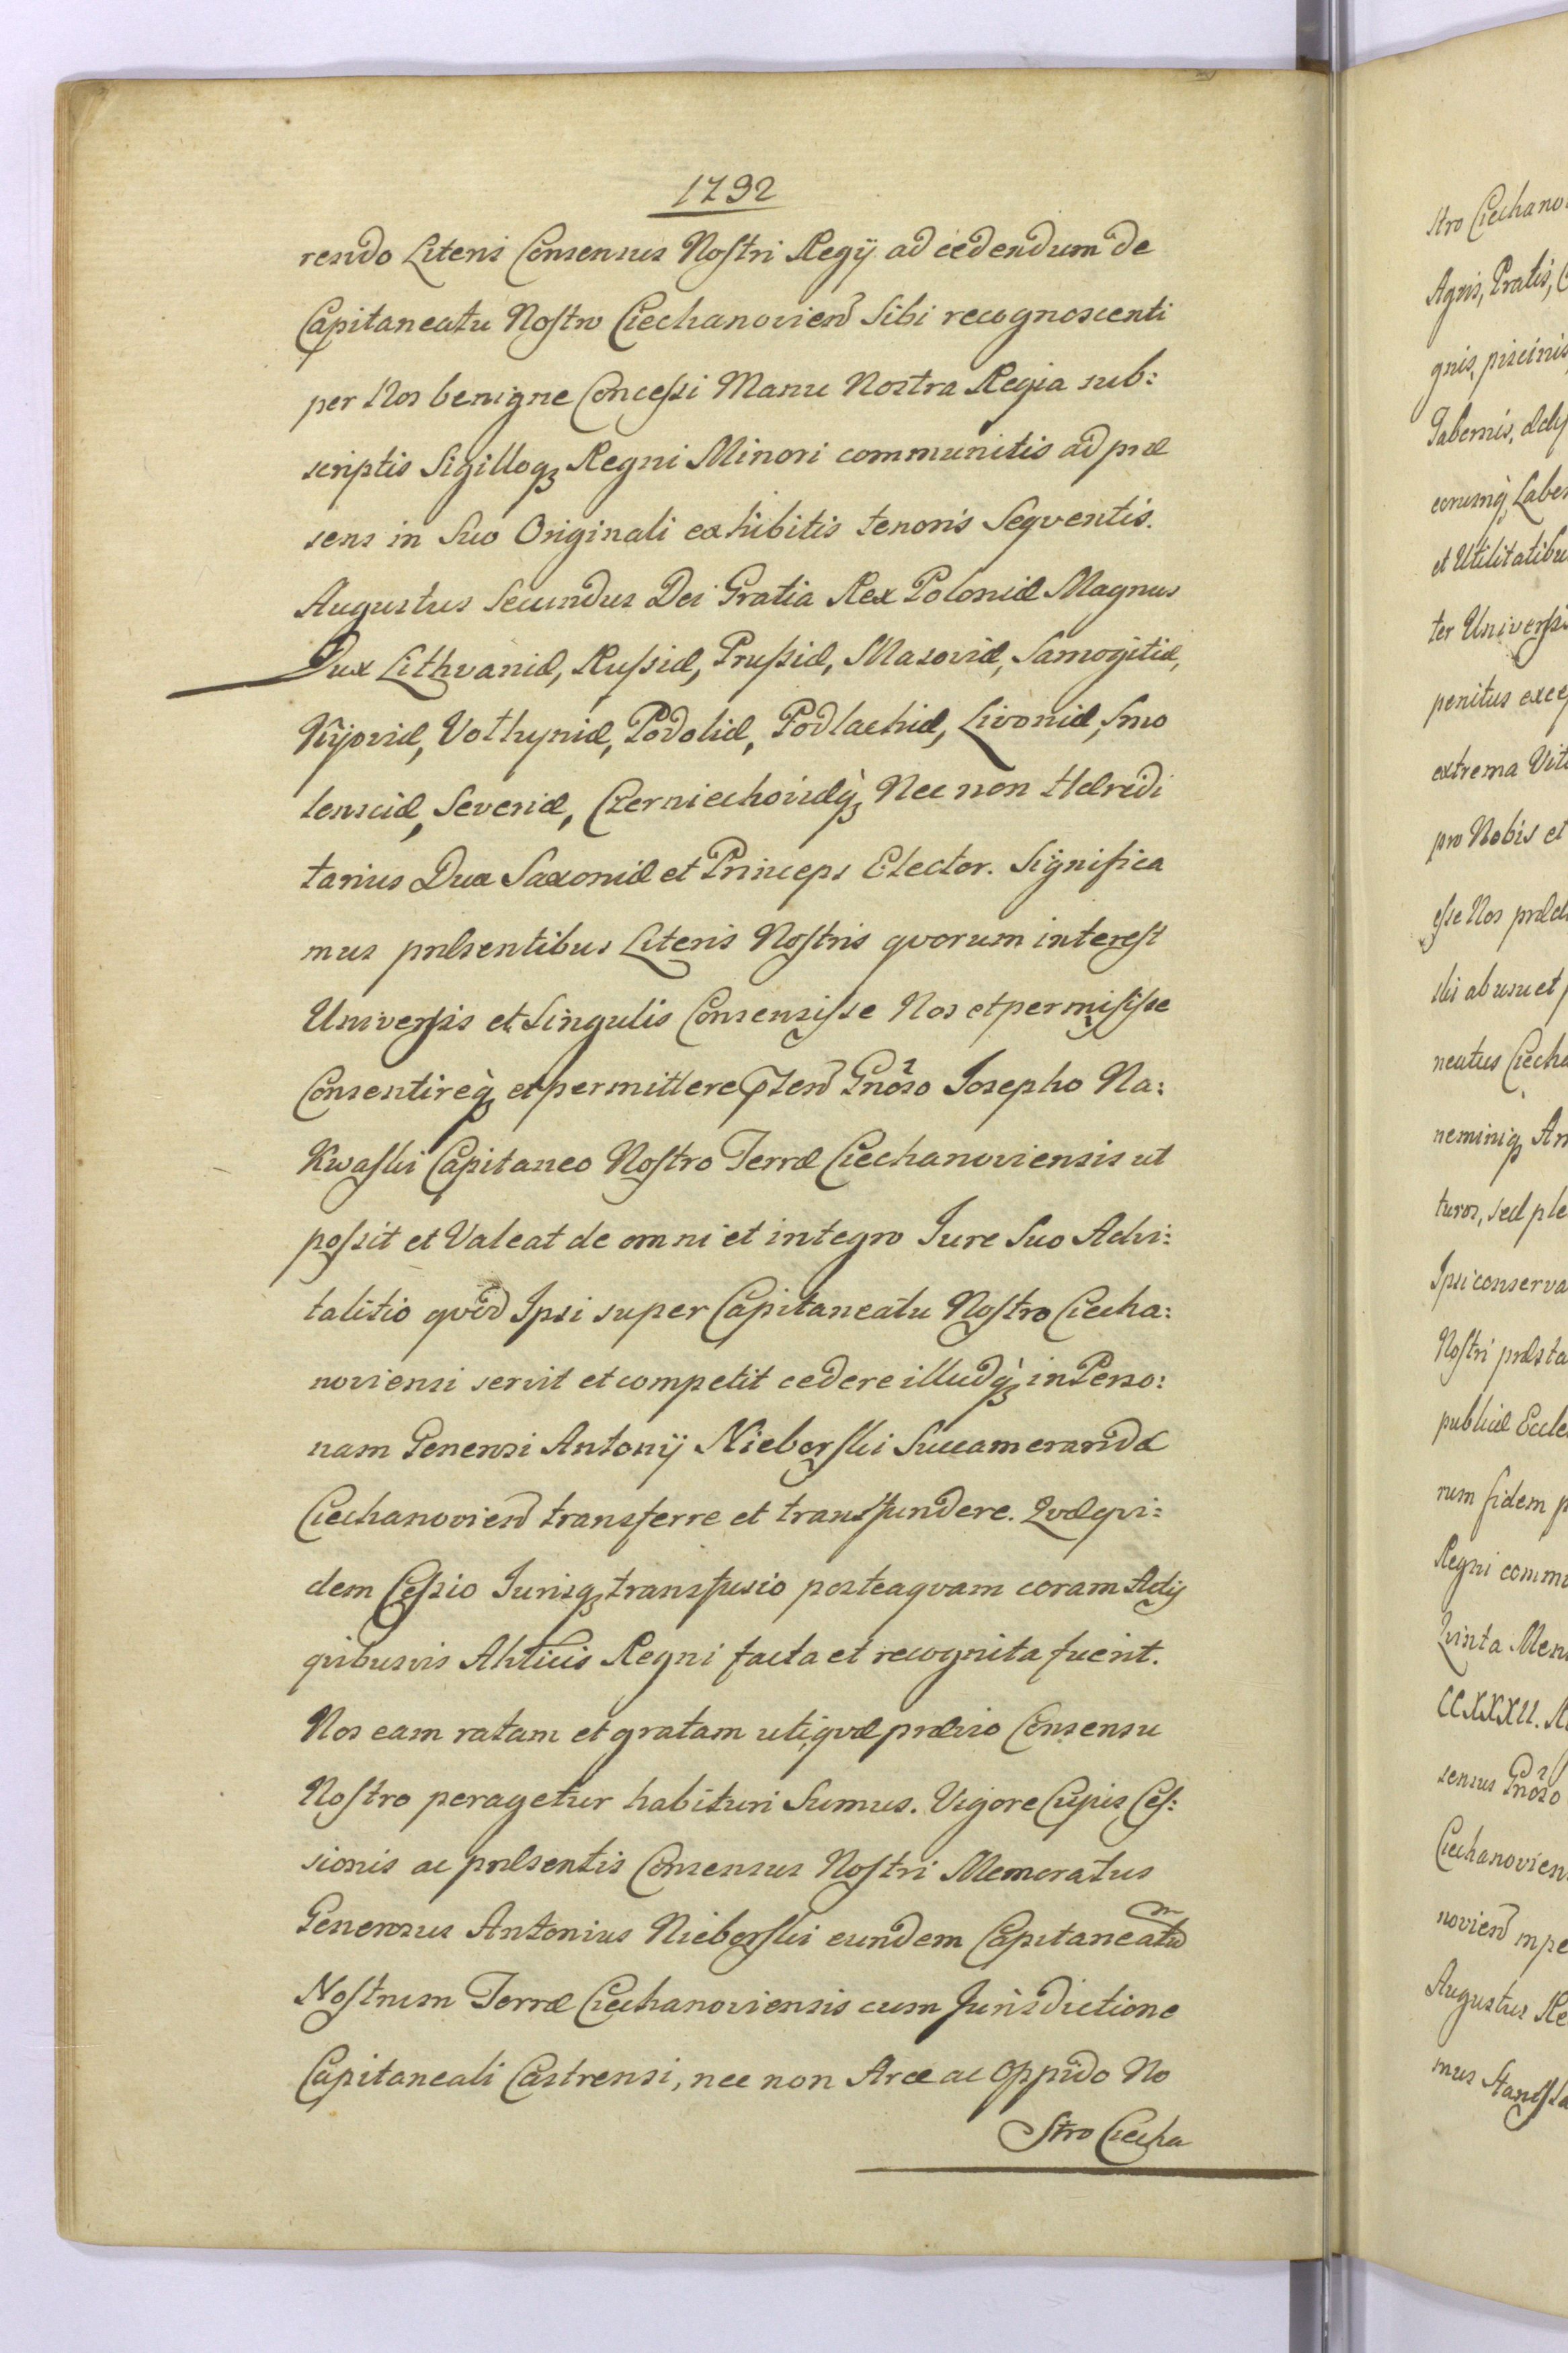 1732
rendo Literis Consensus Nostri Regÿ ad cedendum de
Capitaneatu Nostro Ciechanovien Sibi recognoscenti
per Nos benigne Concessi Manu Nostra Regia sub:
scriptis Sigilloq Regni Minori communitis ad præ
sens in Suo Originali exhibitis tenoris Seqventis.
Augustus Secundus Dei Gratia Rex Poloniæ Magnus
Dux Lithvaniæ, Russiæ, Prussiæ, Masoviæ, Samogitiæ,
Kÿoviæ, Volhyniæ, Podoliæ, Podlachiæ, Livoniæ, Smo
lensciæ, Severiæ, Czerniechoviæq Nec non Hæredi
tarius Dux Saxoniæ et Princeps Elector. Significa
mus præsentibus Literis Nostris qvorum interest
Universis et Singulis Consensisse Nos et permisisse
Consentireq et permittere Gnoso Josepho Na:
Kwaski Capitaneo Nostro Terræ Ciechanoviensis ut
possit et Valeat de omni et integro Jure Suo Advi:
talitio qvod Ipsi super Capitaneatu Nostro Ciecha:
noviensi servit et competit cedere illudq in Perso:
nam Generosi Antonÿ Nieborski Succameraridæ
Ciechanovien transferre et transfundere. Qvæ qvi:
dem Cessio Jurisq transfusio posteaqvam coram Actis
qvibusvis Ahticis Regni facta et recognita fuerit.
Nos eam ratam et gratam uti,qvæ prævio Consensu
Nostro peragetur habituri Sumus. Vigore Cujus Ces:
sionis ac præsentis Consensus Nostri Memoratus
Generosus Antonius Nieborski eundem Capitaneatum
Nostrum Terræ Ciechanoviensis cum Jurisdictione
Capitaneali Castrensi, nec non Arce ac Oppido No
Stro Ciecha
stro Ciechano
Agris, Pratis, C
gnis, piscinis
Tabernis,
eorumq Labo
et Utilitatibu
ter Universi
penitus excep
extrema Vit
pro Nobis et
esse Nos præd
ab usu et p
neatus Ciecha
neminiq An
turos, sed ple
Ipsi conserva
Nostri præsta
publicæ Eccle
rum fidem p
Regni commu
Qvinta Men
CCXXXII. R
sensus Gnoso
Ciechanovien
novien in pe
Augustus Re
mus Stanisla